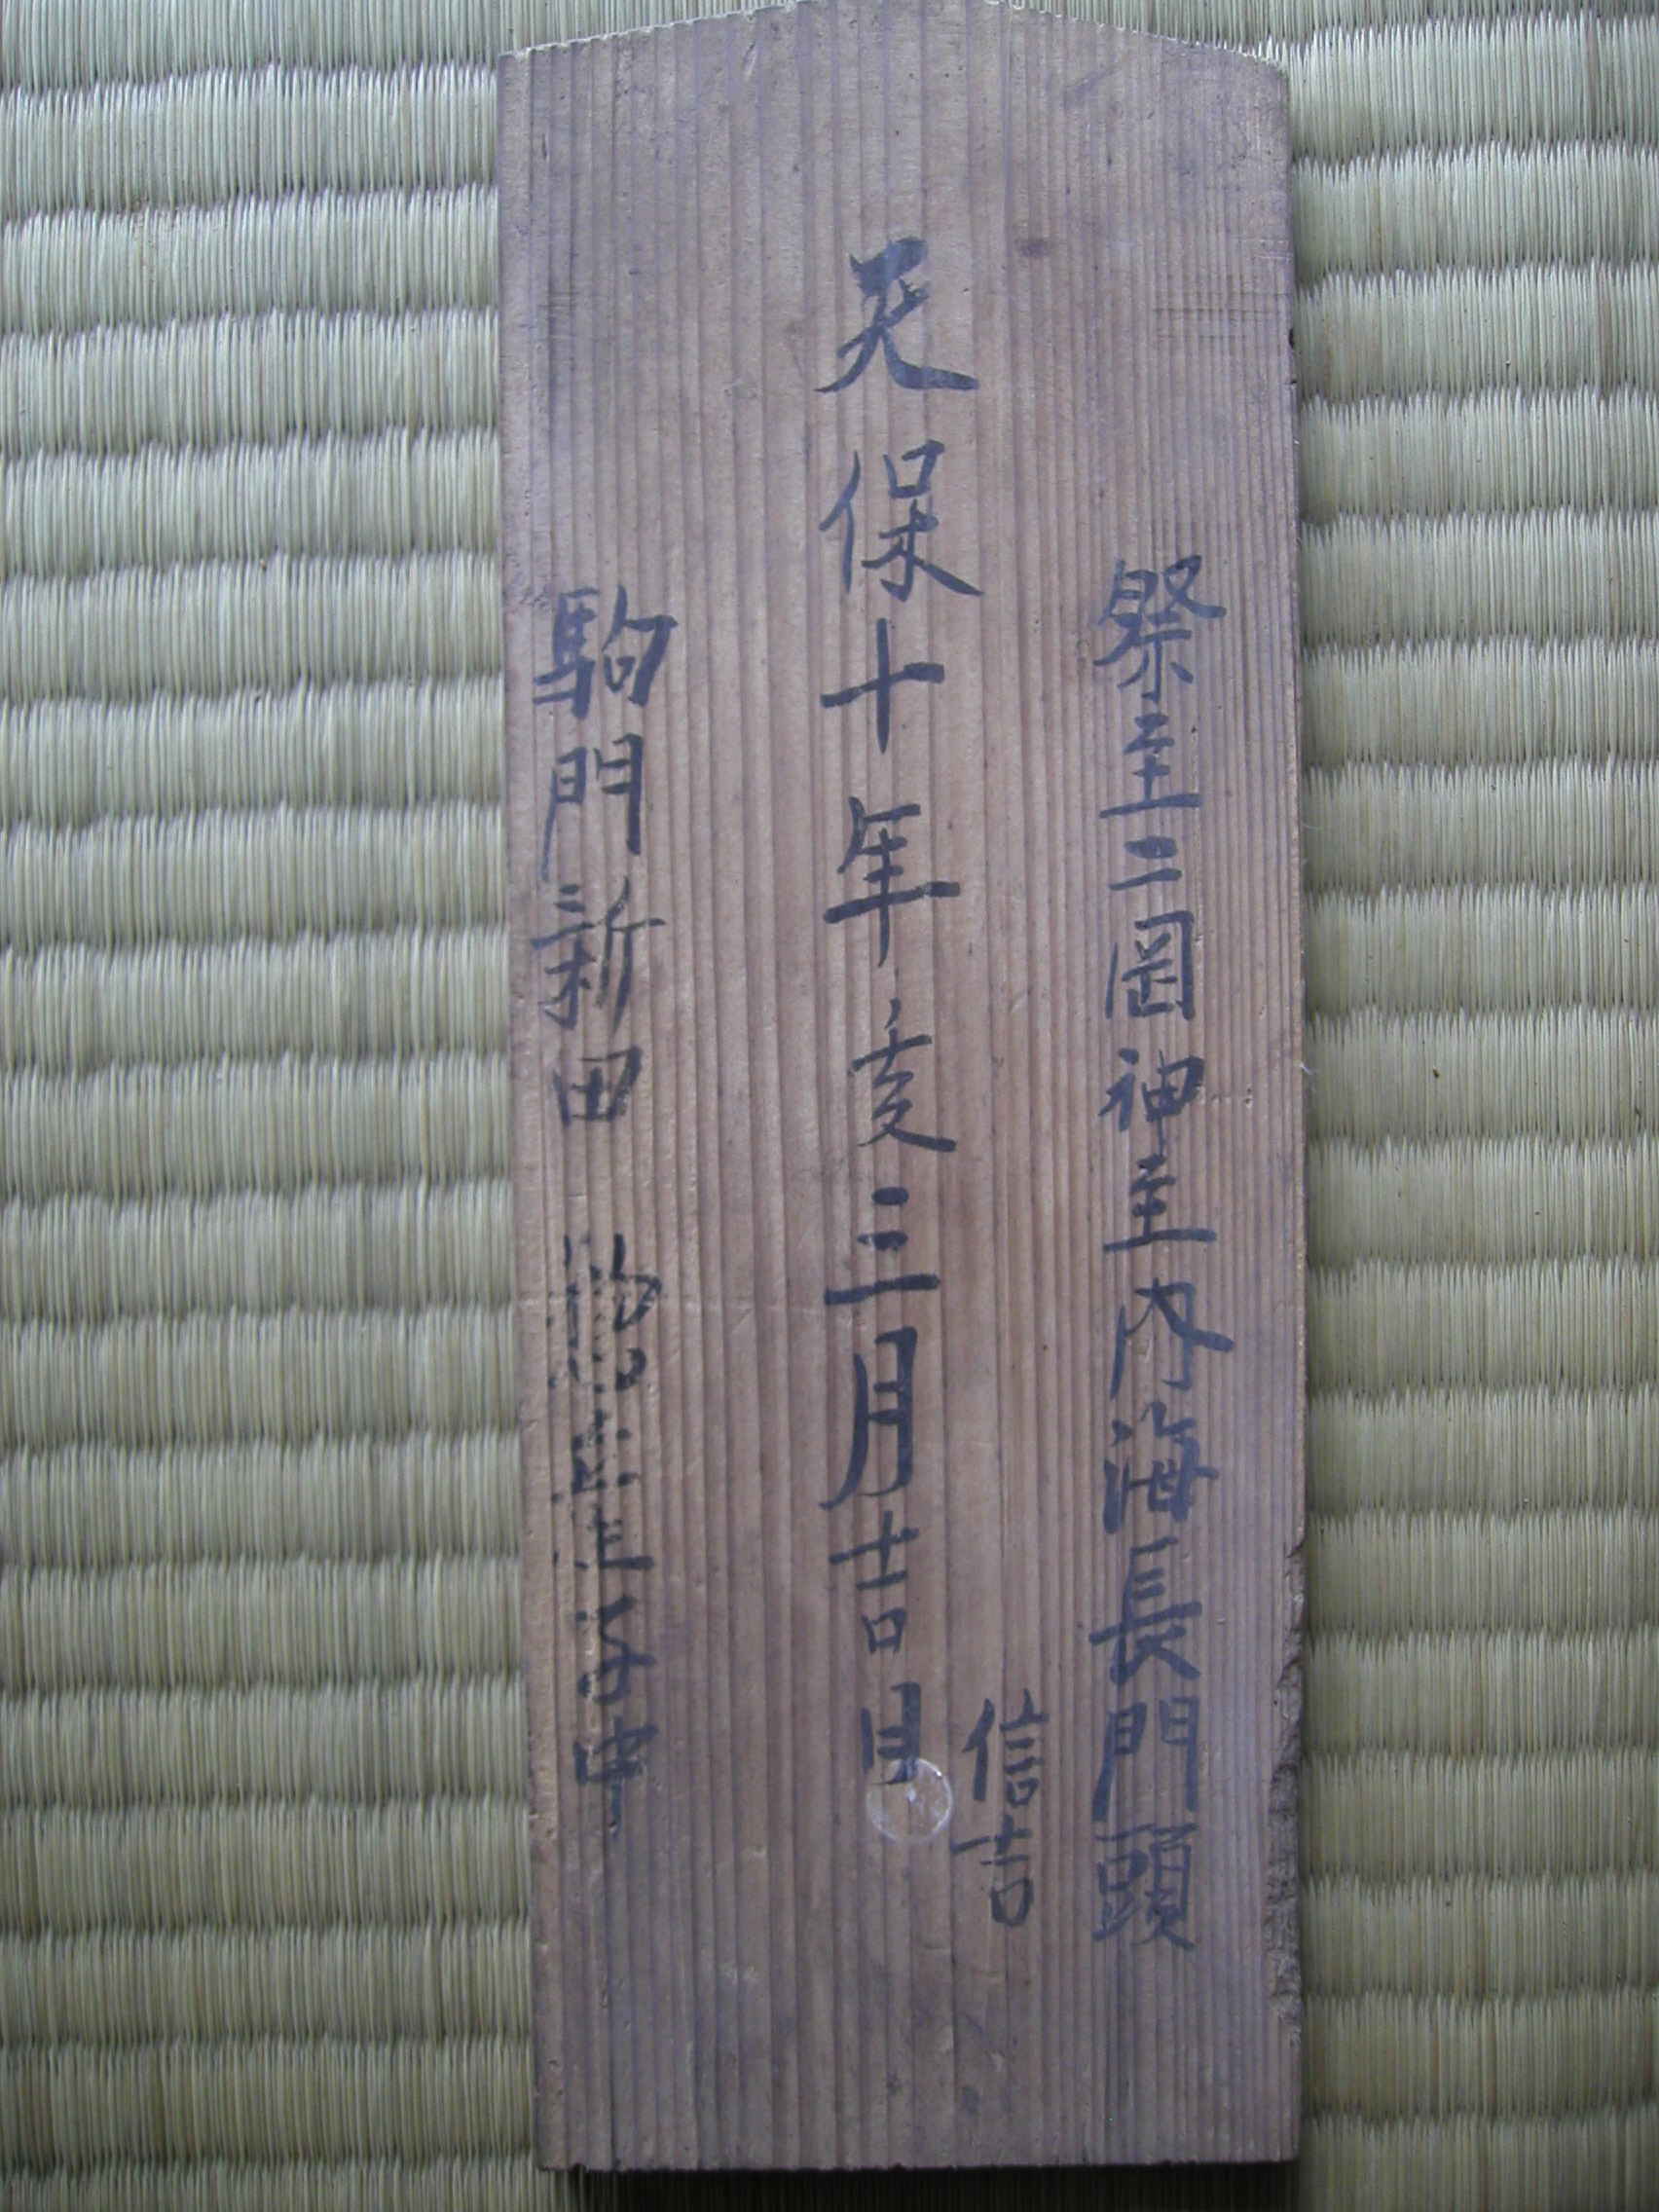 祭主二岡神主内海長門頭
信吉
天保十年亥三月吉日
駒門新田 惣氏子中